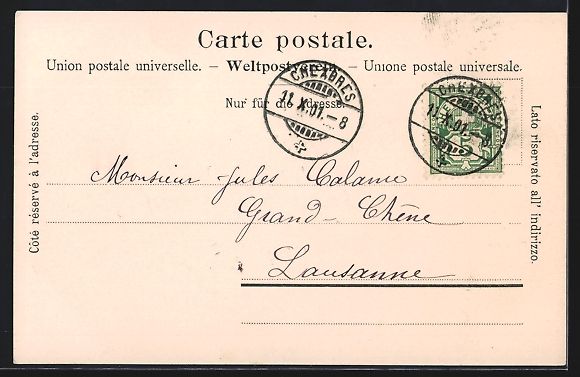 Carte postale.
Union postale universelle. – Weltpostverein. – Unione postale universale.
Nur für die Adresse.
CHEXBRES
11.X.01.–8
CHEXBRES
11.X.01.–8
Côté réservé à l'adresse.
Lato riservato all' indirizzo.
Monsieur Jules Calame
Grand-Chêne
Lausanne